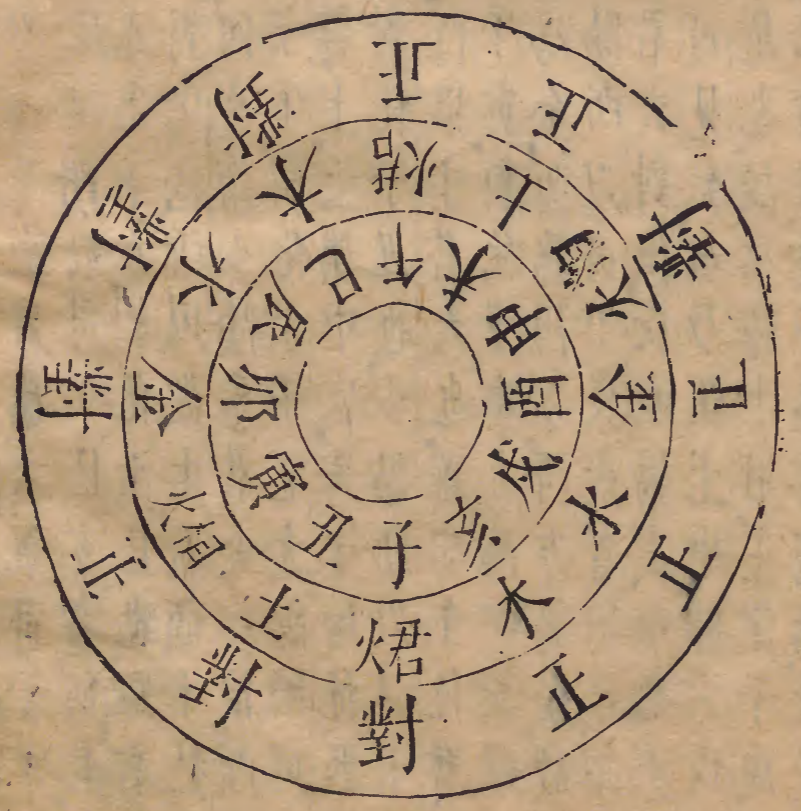 子
丑
寅
卯
辰
巳
午
未
申
酉
戌
亥
君火
土
相火
金
水
木
君火
土
相火
金
水
木
對
對
正
對
對
對
正
正
對
正
正
正